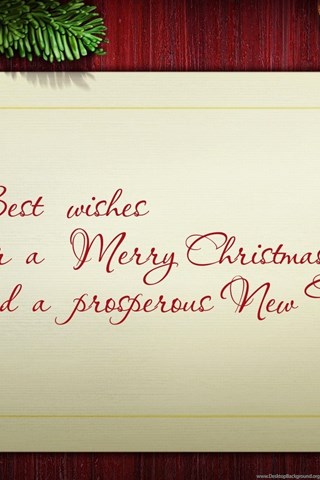 Best wishes
r a Merry Christmas
d a prosperous New
www.DesktopBackground.org